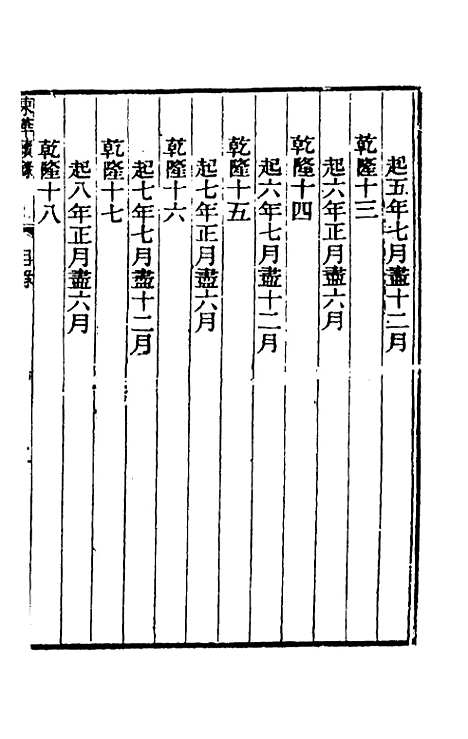 起五年七月盡十二月
乾隆十三
起六年正月盡六月
乾隆十四
起六年七月盡十二月
乾隆十五
起七年正月盡六月
乾隆十六
起七年七月盡十二月
乾隆十七
起八年正月盡六月
乾隆十八